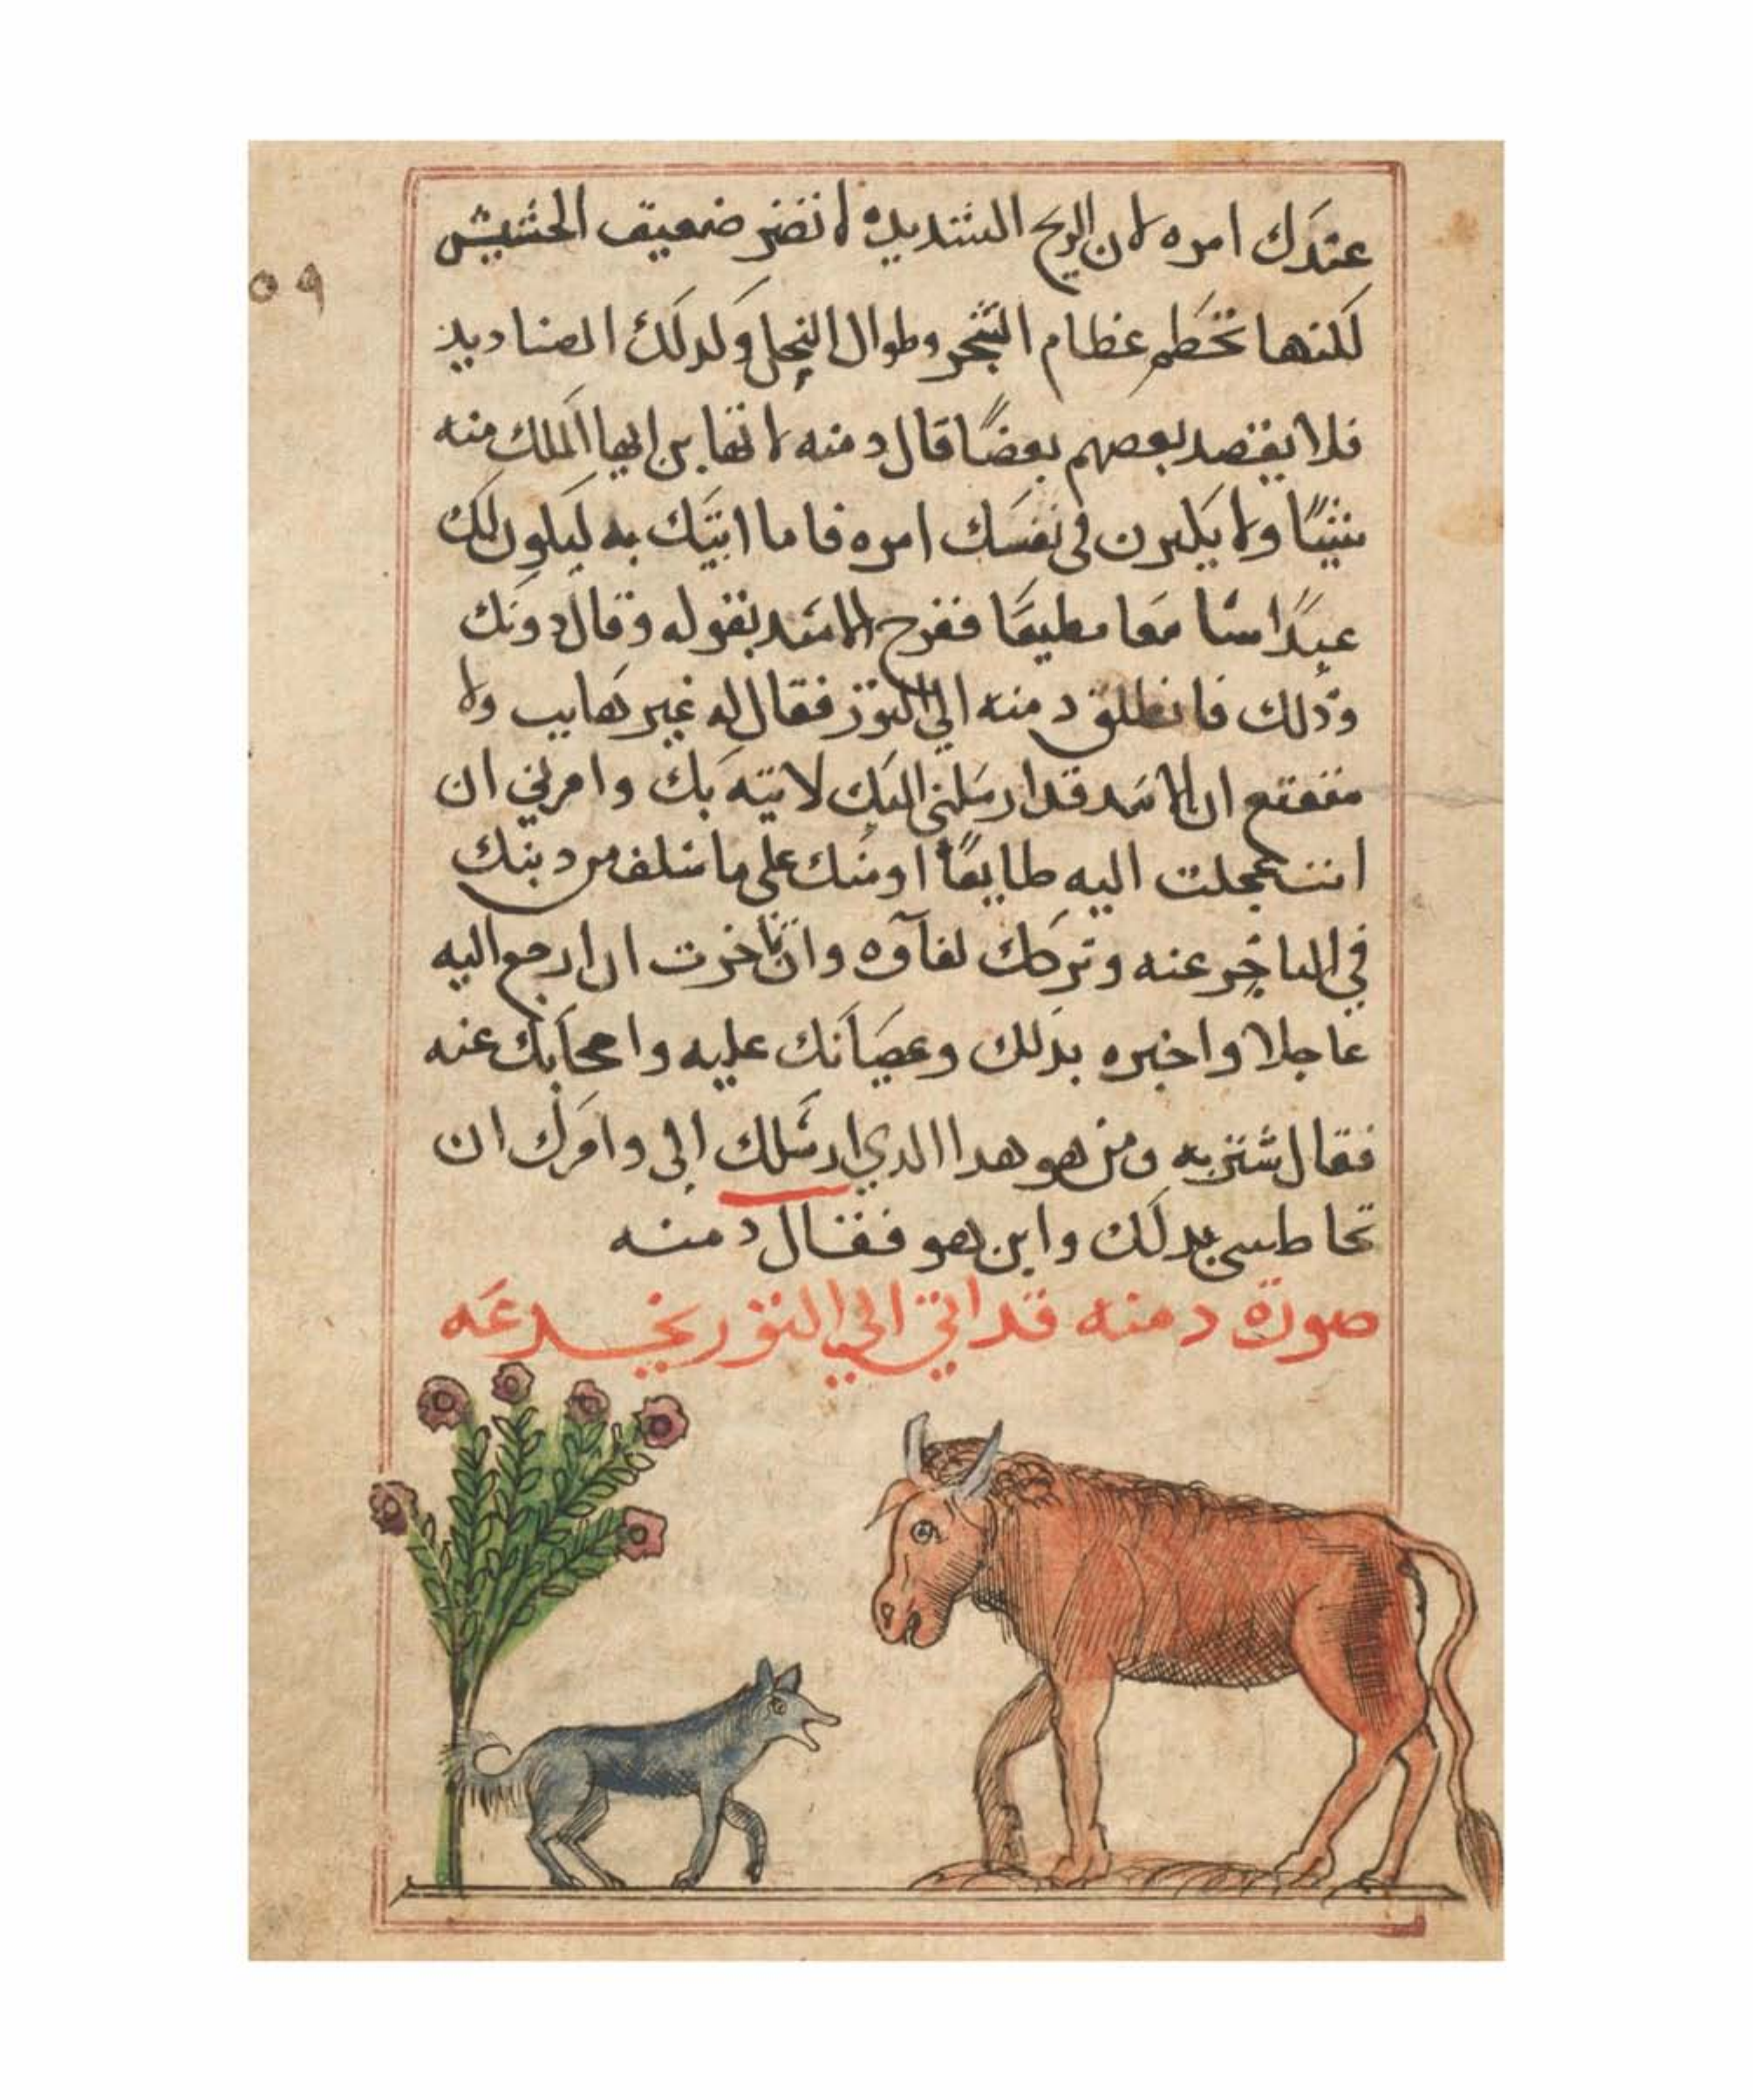 عندك امره لان الريح الشديده لا تضر ضعيف الحشيش
٥٩
لكنها تحطم عظام الشجر وطوال النخل وكدلك الصناديد
فلا يقصد بعصهم بعضًا قال دمنه لا تهابن ايها الملك منه
شيئًا ولا يكبرن في نفسك امره فاما اتيتك به ليكون لك
عبدًا سامعا مطيعًا ففرح الاسد بقوله وقال دونك
وذلك فانطلق دمنه الي الثور فقال له غير هايب ولا
ان الاسد قد ارسلني اليك لاتيه بك وامرني ان
انت عجلت اليه طايعًا اومنك على ما سلف من دنبك
في التاخر عنه وتركك لقآوه وان تاخرت ان ارجع اليه
عاجلا واخبره بدلك وعصيانك عليه عنه
فقال شتربه ومن هو هدا الدي ارسلك الى وامرك ان
بدلك واين هو فقال دمنه
صورة دمنه قد اتي الي الثور يخدعه